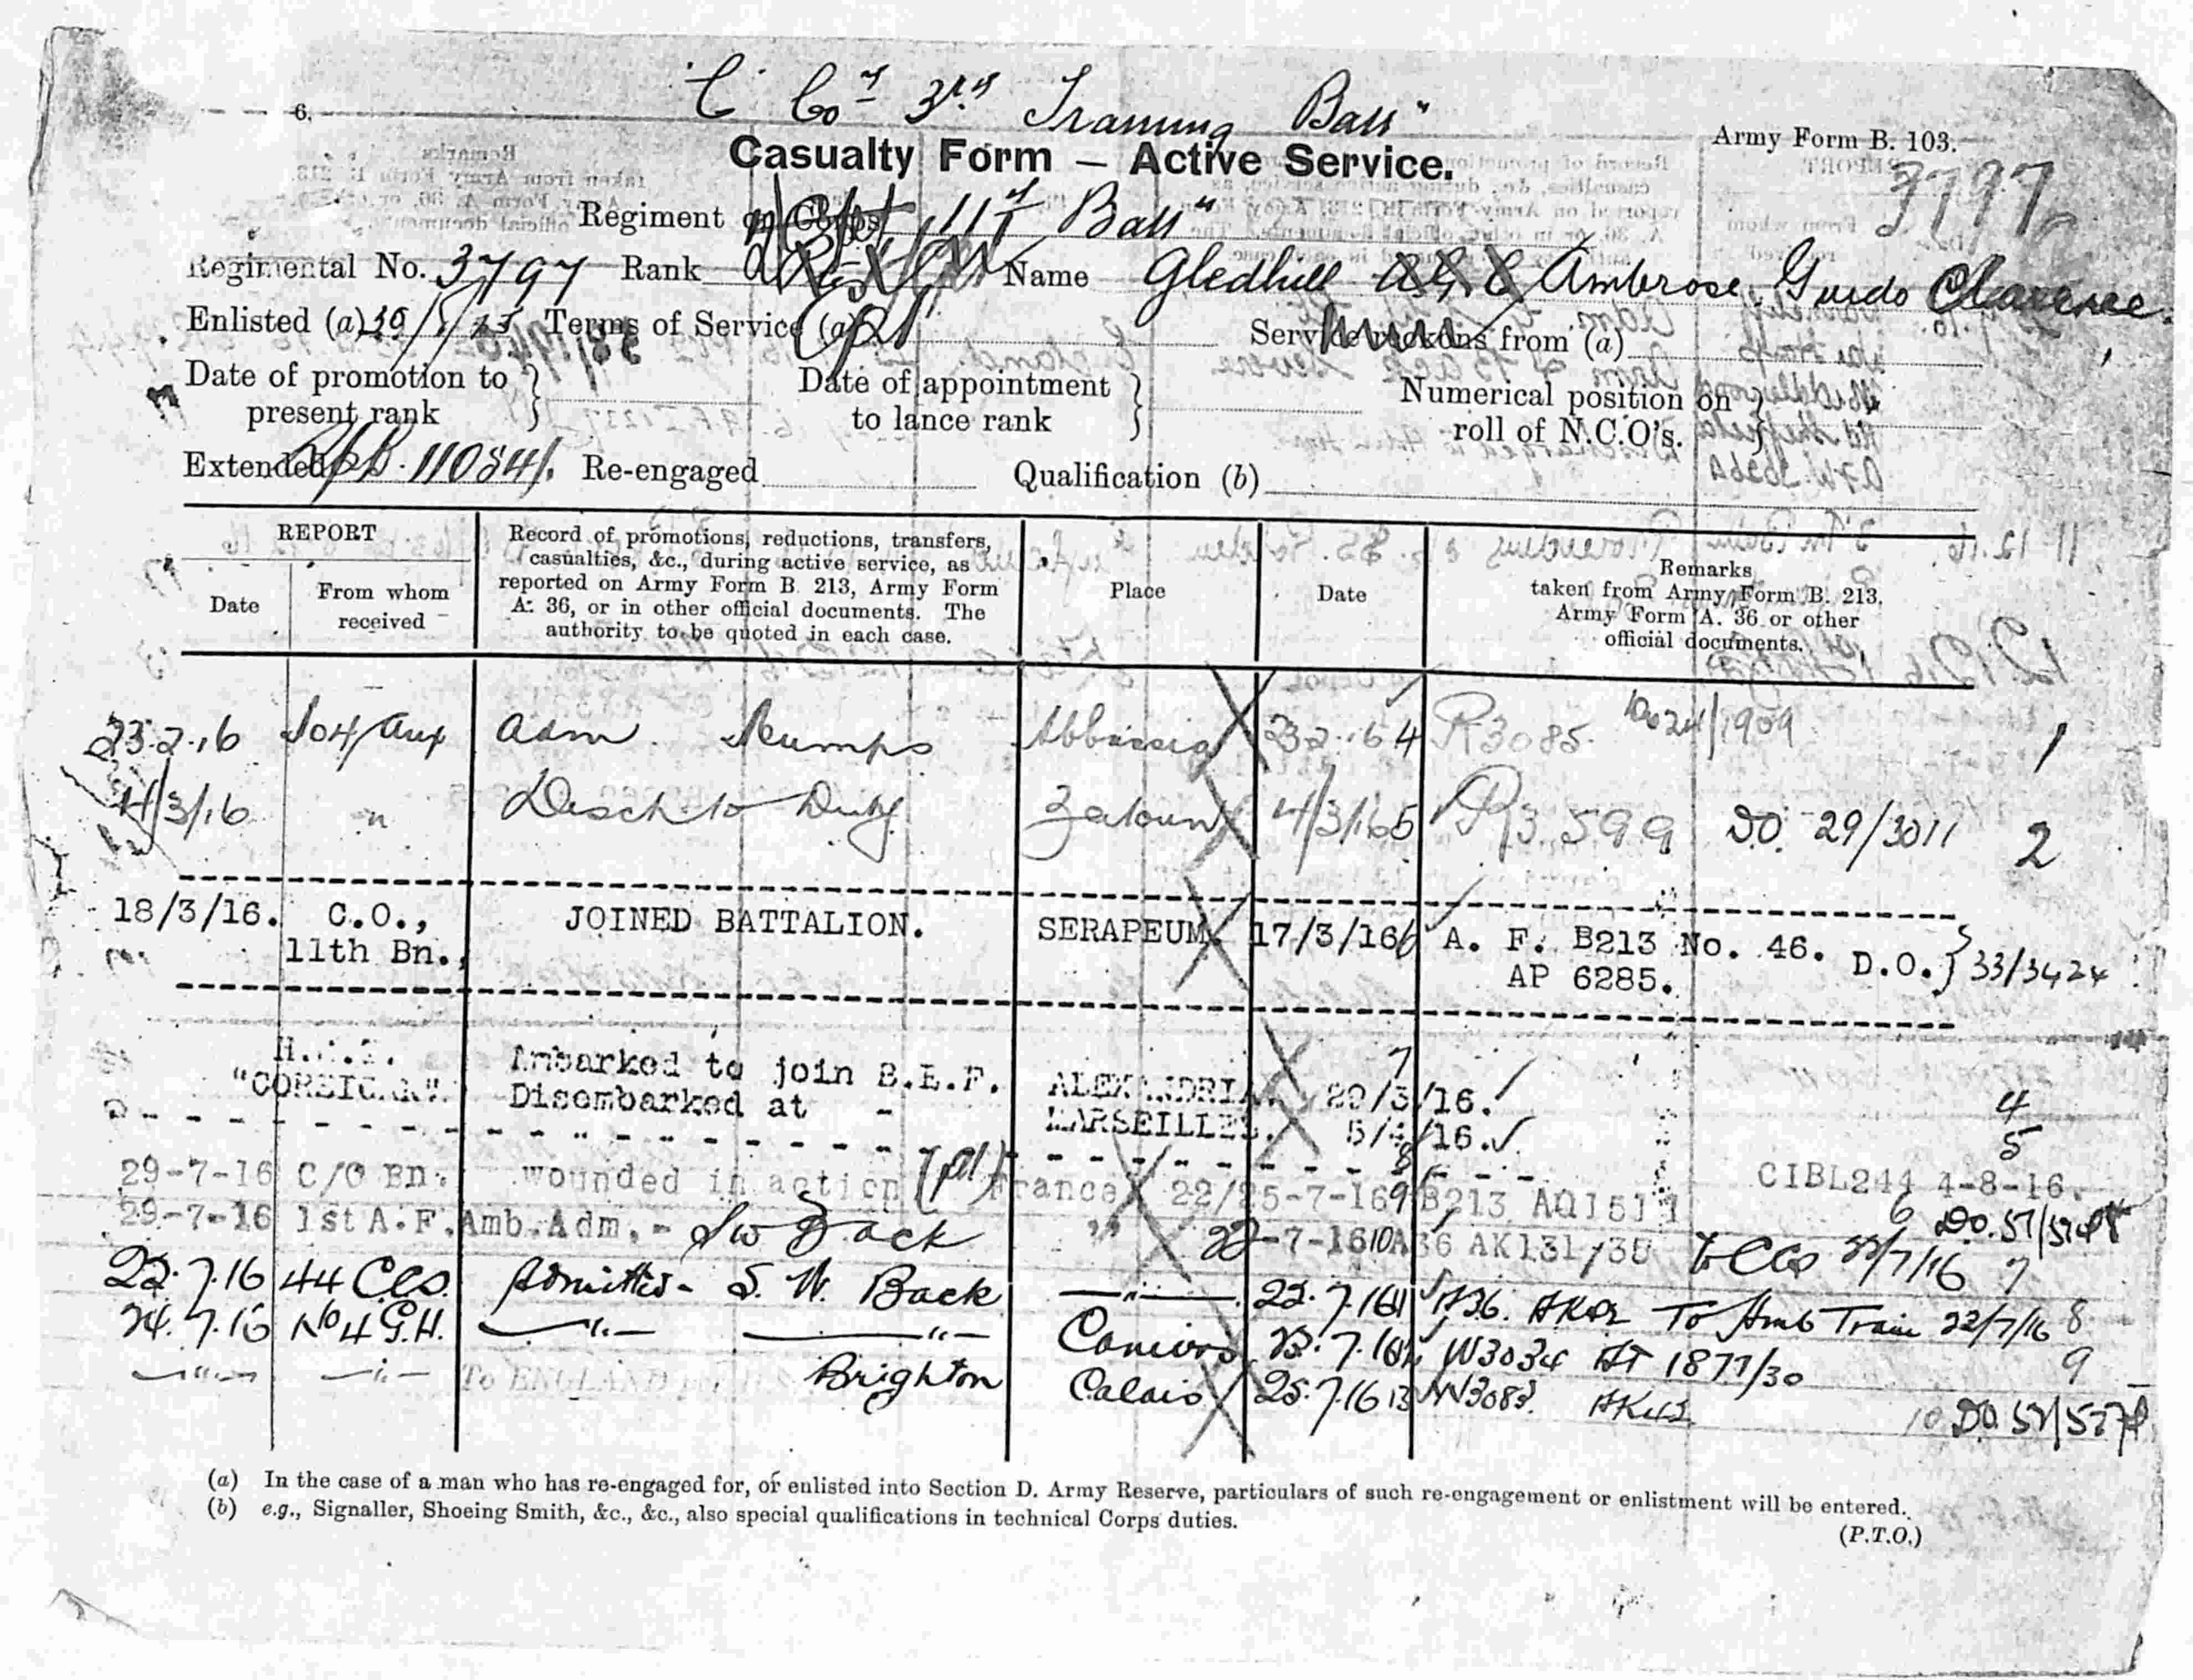 "C" Coy 3rd Training Batt"
6.
Army Form B. 103.
Casualty Form — Active Service.
3797
Regiment or Corps 11th Batt"
Regimental No. 3797 Rank Name Gledhill A.G.C Ambrose Guido Clarence.
Enlisted (a) Terms of Service (a) Service reckons from (a)
Date of promotion to present rank } Date of appointment to lance rank } Numerical position on roll of N.C.O's. }
Extended 11084/. Re-engaged Qualification (b)
REPORT
Date
From whom received
Record of promotions, reductions, transfers, casualties, &c., during active service, as reported on Army Form B. 213, Army Form A. 36, or in other official documents. The authority to be quoted in each case.
Place
Date
Remarks taken from Army Form B. 213, Army Form A. 36 or other official documents.
23.2.16 Aux Adm Mumps Abbassia 23.2.16 4 R3085. 24/1909 1
4/3/16 " Disch. to Duty Zeitoun 4/3/16 5 R3599 DO. 29/3011 2
18/3/16. C.O., JOINED BATTALION. SERAPEUM. 17/3/16 6 A. F. B213 No. 46. D.O. } 33/3424
11th Bn., AP 6285.
"CORSICAN". Embarked to join B.E.F. ALEXANDRIA. 7 29/3/16. 4
Disembarked at - MARSEILLES. 5/4/16. 5
8
29-7-16 C/O Bn. wounded in action France 22/25-7-16 9 B213 AQ1511 CIBL244 4-8-16.
29-7-16 1st A.F.Amb. Adm. - SW Back " 22-7-16 10 A36 AK131/35 to CCS 22/7/16 6 DO. 57/
7
22.7.16 44 CCS. Admitted - S. W. Back —"— 22.7.16 11 A36. To Amb Train 22/7/16 8
24.7.16 No 4 G.H. —"— —"— Camiers 23.7.16 12 W3034 AT 1877/30 9
—"— —"— To ENGLAND per Brighton Calais 25.7.16 13 W3083. AK42 10 DO.
(a) In the case of a man who has re-engaged for, or enlisted into Section D. Army Reserve, particulars of such re-engagement or enlistment will be entered.
(b) e.g., Signaller, Shoeing Smith, &c., &c., also special qualifications in technical Corps duties.
(P.T.O.)